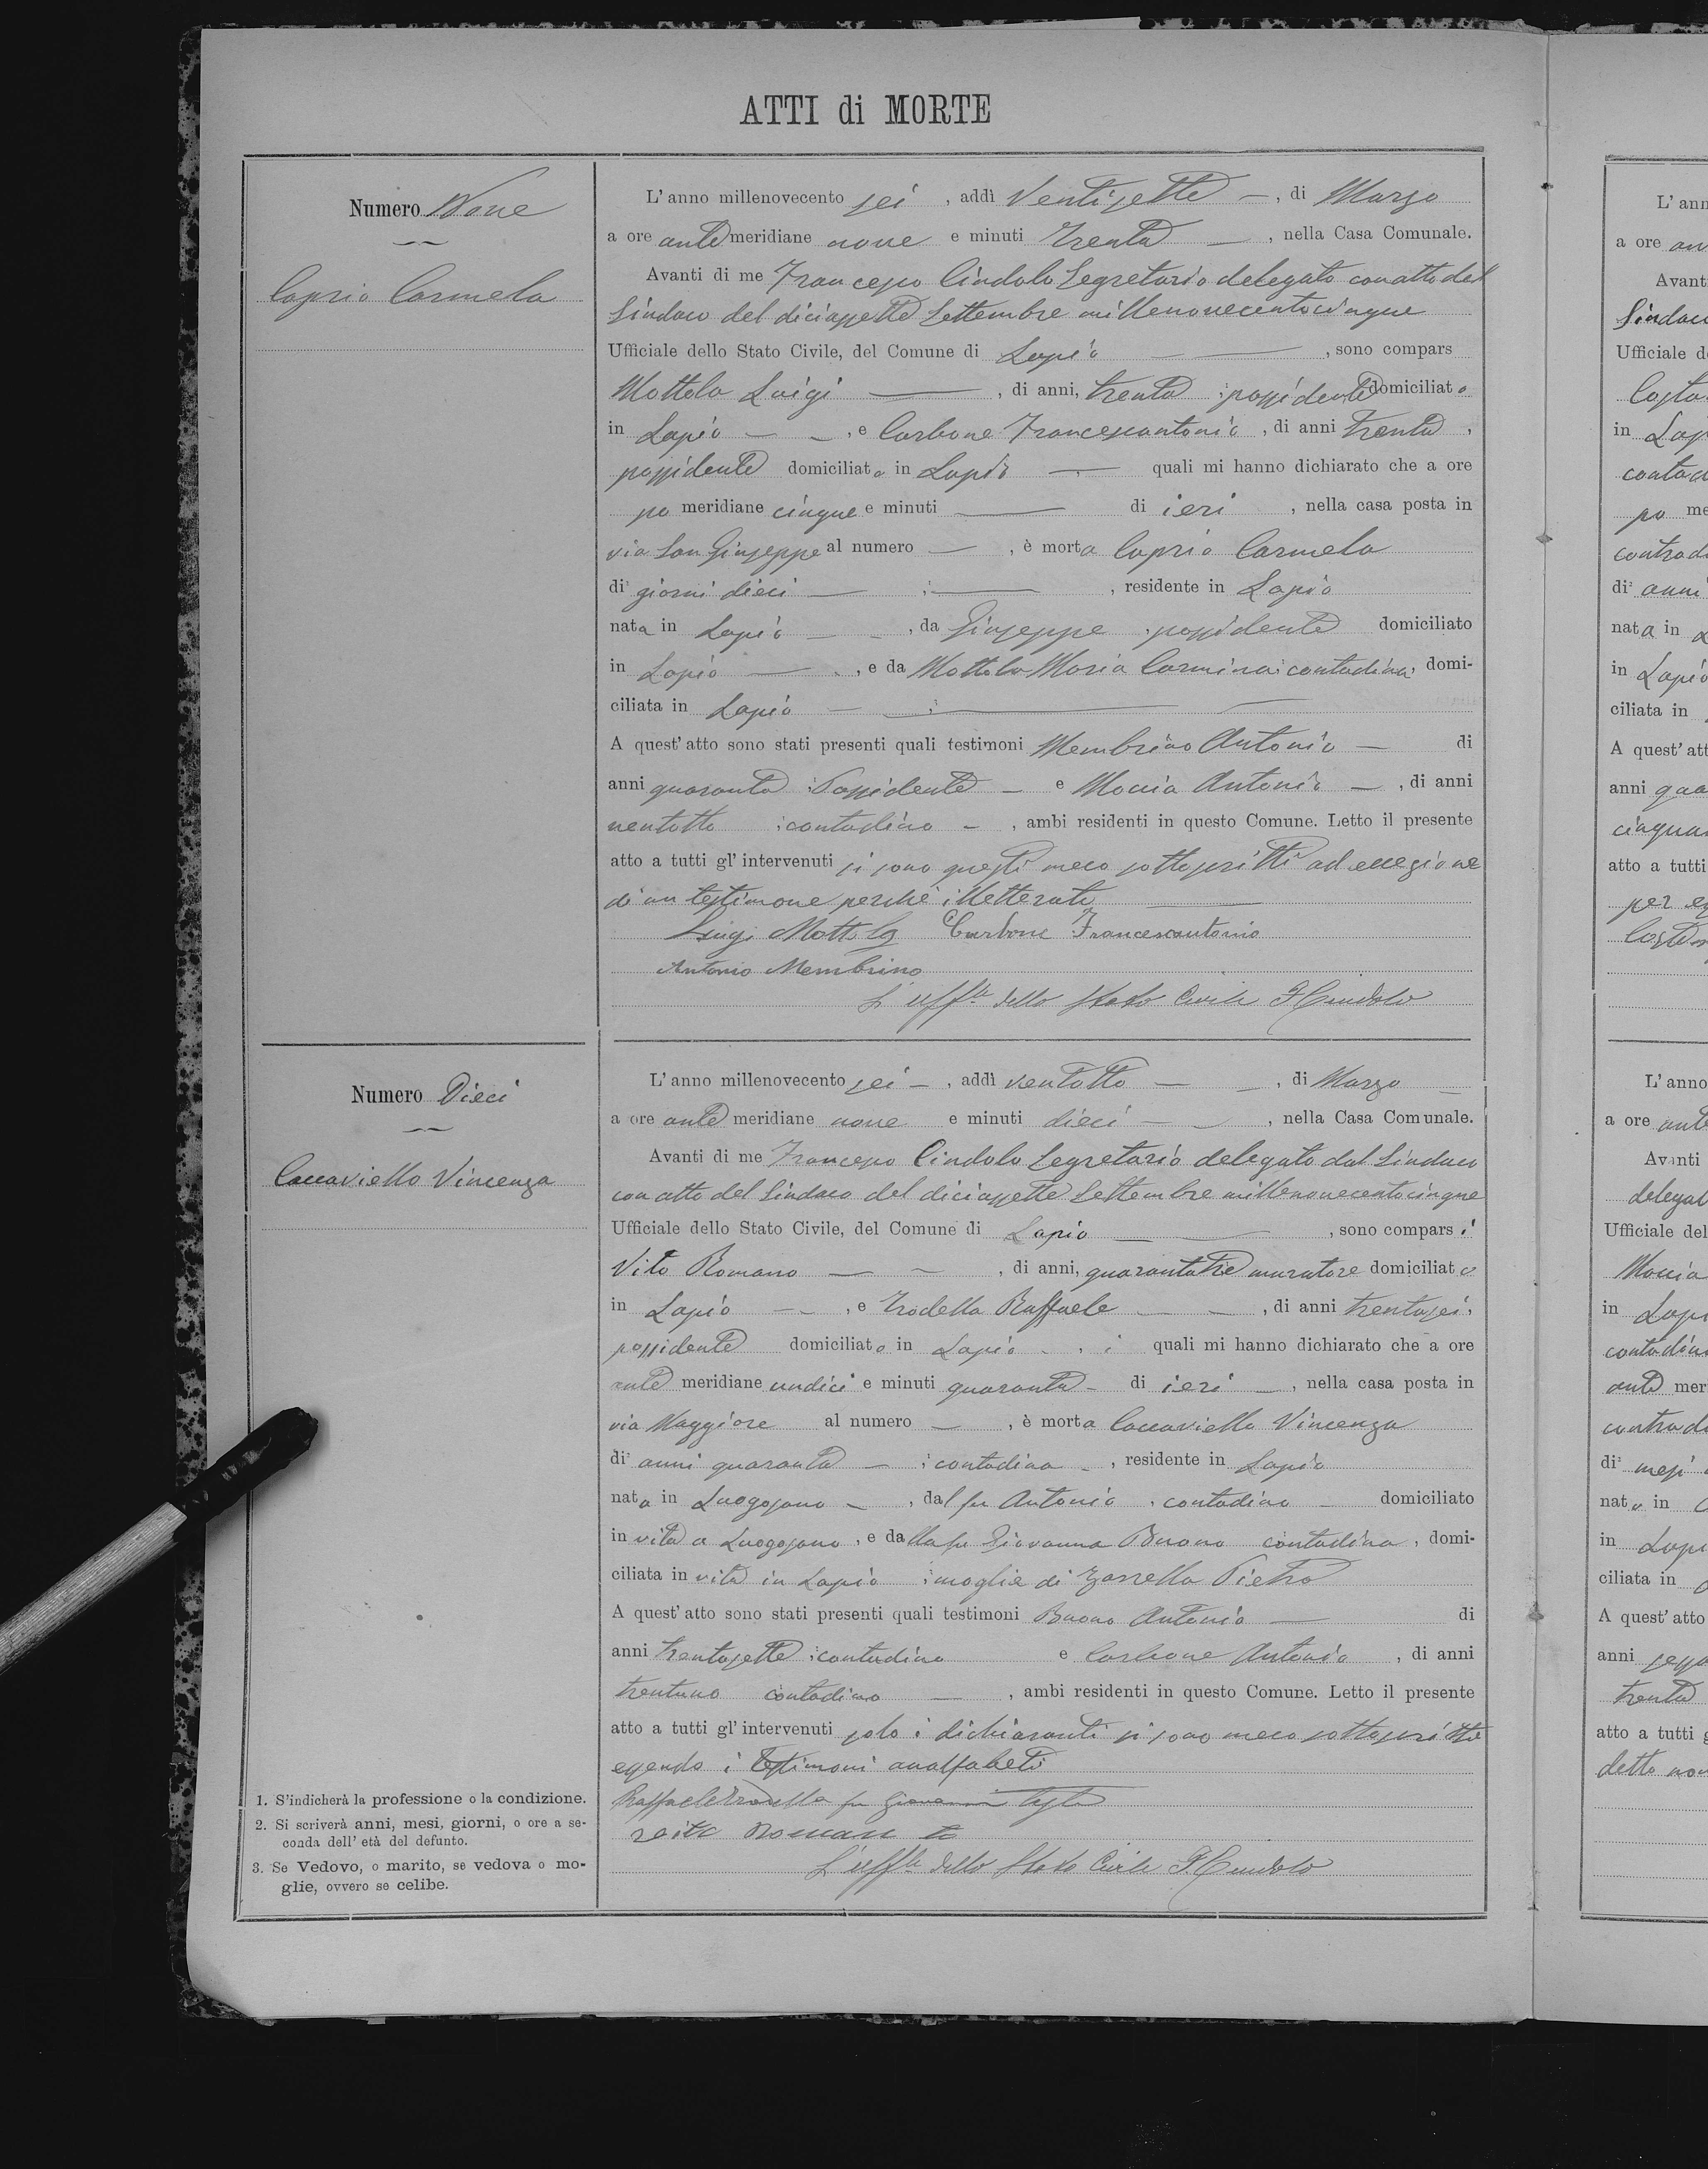 ATTI di MORTE
Numero Nove
Caprio Carmela
L'anno millenovecento sei, addì Ventisette —, di Marzo
a ore ante meridiane nove e minuti trenta —, nella Casa Comunale.
Avanti di me Francesco Cindolo Segretario delegato con atto del
Sindaco del diciassette Settembre millenovecentocinque
Ufficiale dello Stato Civile, del Comune di Lapio — —, sono compars
Mottola Luigi —, di anni, trenta possidente domiciliato
in Lapio — —, e Carbone Francescantonio, di anni trenta,
possidente domiciliato in Lapio — quali mi hanno dichiarato che a ore
po meridiane cinque e minuti — di ieri, nella casa posta in
via San Giuseppe al numero —, è morta Caprio Carmela
di² giorni dieci — ; —, residente in Lapio
nata in Lapio — —, da Giuseppe, possidente domiciliato
in Lapio —, e da Mottola Maria Carmina contadina, domi-
ciliata in Lapio — ; —
A quest'atto sono stati presenti quali testimoni Membrino Antonio — di
anni quaranta Possidente — e Moccia Antonio —, di anni
ventotto contadino —, ambi residenti in questo Comune. Letto il presente
atto a tutti gl'intervenuti si sono questi meco sottoscritti ad eccezione
di un testimone perchè illetterato —
Luigi Mottola Carbone Francescantonio
Antonio Membrino
L'uff.le dello Stato Civile F. Cindolo
Numero Dieci
Caccaviello Vincenza
L'anno millenovecento sei —, addì ventotto — —, di Marzo —
a ore ante meridiane nove e minuti dieci — —, nella Casa Comunale.
Avanti di me Francesco Cindolo Segretario delegato dal Sindaco
con atto del Sindaco del diciassette Settembre millenovecentocinque
Ufficiale dello Stato Civile, del Comune di Lapio — —, sono comparsi
Vito Romano — —, di anni, quarantatre muratore domiciliato
in Lapio — —, e Trodella Raffaele — —, di anni trentasei,
possidente domiciliato in Lapio i quali mi hanno dichiarato che a ore
ante meridiane undici e minuti quaranta — di ieri —, nella casa posta in
via Maggiore al numero —, è morta Caccaviello Vincenza
di² anni quaranta — ; contadina —, residente in Lapio
nata in Luogosano —, dal fu Antonio, contadino — domiciliato
in vita a Luogosano, e dalla fu Giovanna Buono contadina, domi-
ciliata in vita in Lapio ; moglie di Zarrella Pietro
A quest'atto sono stati presenti quali testimoni Buono Antonio — di
anni trentasette ; contadino e Carbone Antonio, di anni
trentuno contadino —, ambi residenti in questo Comune. Letto il presente
atto a tutti gl'intervenuti solo i dichiaranti si sono meco sottoscritti
essendo i testimoni analfabeti
Raffaele Trodella fu Giovanni
Romano
L'uff.le dello Stato Civile F. Cindolo
1. S'indicherà la professione o la condizione.
2. Si scriverà anni, mesi, giorni, o ore a se-
conda dell'età del defunto.
3. Se Vedovo, o marito, se vedova o mo-
glie, ovvero se celibe.